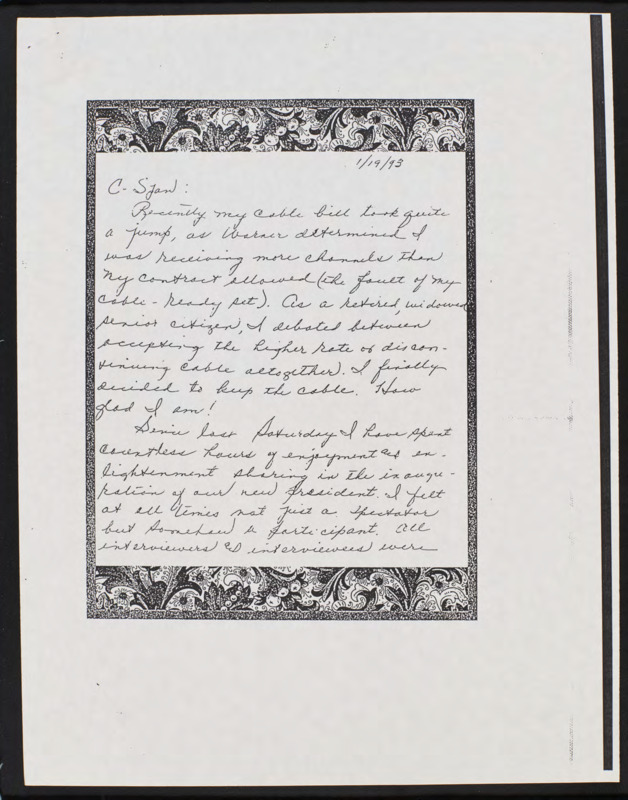 1/19/93
C-Span:
Recently my cable bill took quite
a jump, as Warner determined I
was receiving more channels than
my contract allowed (the fault of my
cable-ready set). As a retired, widowed
senior citizen, I debated between
accepting the higher rate or discon-
tinuing cable altogether. I finally
decided to keep the cable. How
glad I am!
Since last Saturday I have spent
countless hours of enjoyment & en-
lightenment sharing in the inaugu-
ration of our new president. I felt
at all times not just a spectator
but somehow a participant. All
interviewers & interviewees were